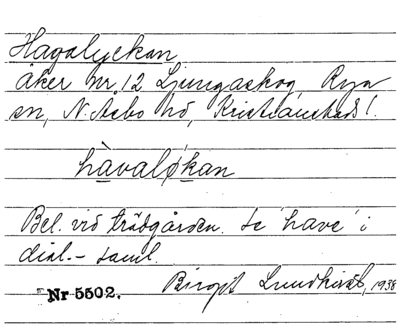 Hagalyckan
åker nr 12 Ljungaskog, Rya
sn, N. Åsbo hd, Kristianstads l.
hàvaløkan
Bel. vid trädgården. se 'have' i
dial.- saml.
Birgit Lundkvist, 1938
Nr 5502.